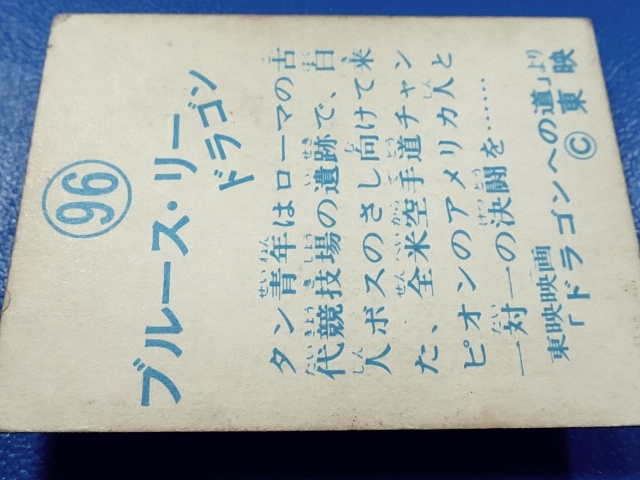 96
ブルース・リー
ドラゴン
タン青年はローマの古
代競技場の遺跡で、白
人ボスのさし向けて来
た、全米空手道チャン
ピオンのアメリカ人と
一対一の決闘を……
東映映画
「ドラゴンへの道」より
©東映